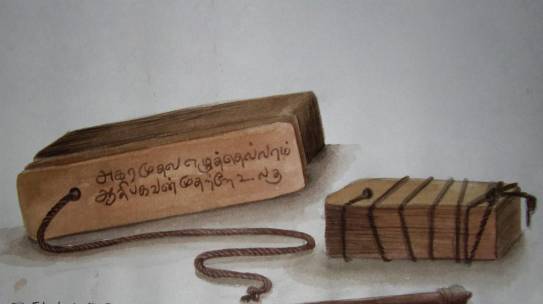 அகர முதல எழுத்தெல்லாம்
ஆதிபகவன் முதற்றே உலகு